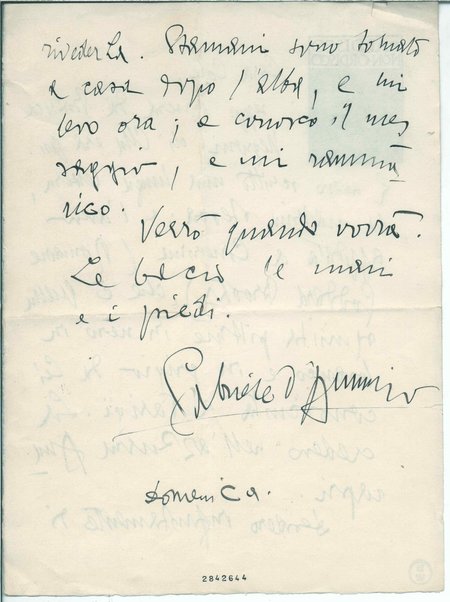 rivederLa. Stamani sono tornato
a casa dopo l'alba, e mi
levo ora; e conosco il mes
saggio, e mi rammà
rico.
Verrò quando vorrà.
Le bacio le mani
e i piedi.
Gabriele d'Annunzio
domenica.
2842644